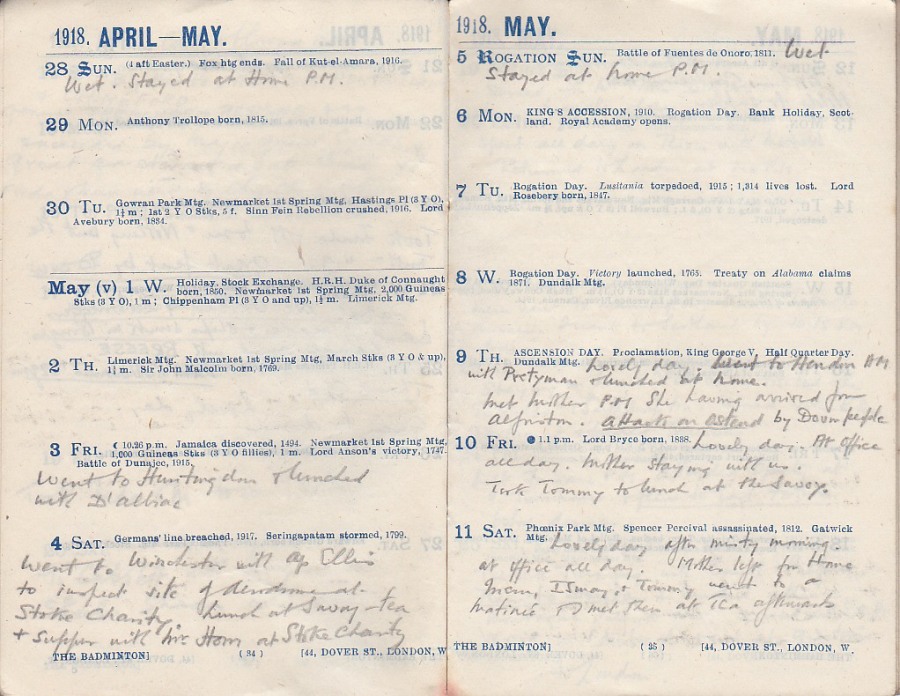 1918. APRIL—MAY.
28 SUN. (4 aft Easter.) Fox htg ends. Fall of Kut-el-Amara, 1916.
Wet. Stayed at Home P.M.
29 MON. Anthony Trollope born, 1815.
30 TU. Gowran Park Mtg. Newmarket 1st Spring Mtg, Hastings Pl (3 Y O),
1¼ m; 1st 2 Y O Stks, 5 f. Sinn Fein Rebellion crushed, 1916. Lord
Avebury born, 1834.
May (v) 1 W. Holiday, Stock Exchange. H.R.H. Duke of Connaught
born, 1850. Newmarket 1st Spring Mtg, 2,000 Guineas
Stks (3 Y O), 1 m; Chippenham Pl (3 Y O and up), 1½ m. Limerick Mtg.
2 TH. Limerick Mtg. Newmarket 1st Spring Mtg, March Stks (3 Y O & up),
1¼ m. Sir John Malcolm born, 1769.
3 FRI. ☾ 10.26 p.m. Jamaica discovered, 1494. Newmarket 1st Spring Mtg,
1,000 Guineas Stks (3 Y O fillies), 1 m. Lord Anson's victory, 1747.
Battle of Dunajec, 1915.
Went to Huntingdon & lunched
with D'albiac
4 SAT. Germans' line breached, 1917. Seringapatam stormed, 1799.
Went to Winchester with Ellis
to inspect site of Aerodrome at
Stoke Charity. Lunch at Savoy - tea
+ supper with at Stoke Charity
THE BADMINTON] ( 34 ) [44, DOVER ST., LONDON, W
1918. MAY.
5 ROGATION SUN. Battle of Fuentes de Onoro, 1811. Wet
Stayed at home P.M.
6 MON. KING'S ACCESSION, 1910. Rogation Day. Bank Holiday, Scot-
land. Royal Academy opens.
7 TU. Rogation Day. Lusitania torpedoed, 1915; 1,314 lives lost. Lord
Rosebery born, 1847.
8 W. Rogation Day. Victory launched, 1765. Treaty on Alabama claims
1871. Dundalk Mtg.
9 TH. ASCENSION DAY. Proclamation, King George V. Half Quarter Day.
Dundalk Mtg. Lovely day. Went to Hendon AM
with Pretyman & lunched at home.
Met Mother P.M. She having arrived from
Alfriston. Attack on Ostend by Dover people
10 FRI. ● 1.1 p.m. Lord Bryce born, 1838. Lovely day. At Office
all day. Mother staying with us.
Took Tommy to lunch at the Savoy.
11 SAT. Phœnix Park Mtg. Spencer Percival assassinated, 1812. Gatwick
Mtg. Lovely day after misty morning.
at Office all day. Mother left for Home
Ismay & Tommy went to a
matinée & I met them at Tea afterwards
THE BADMINTON] ( 35 ) [44, DOVER ST., LONDON, W.